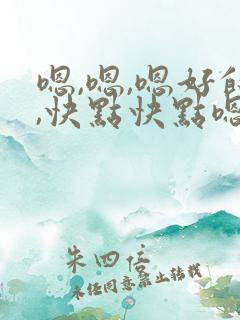 嗯,嗯,嗯好
,快點快點嗯
朱四倍
未经同意禁止转载